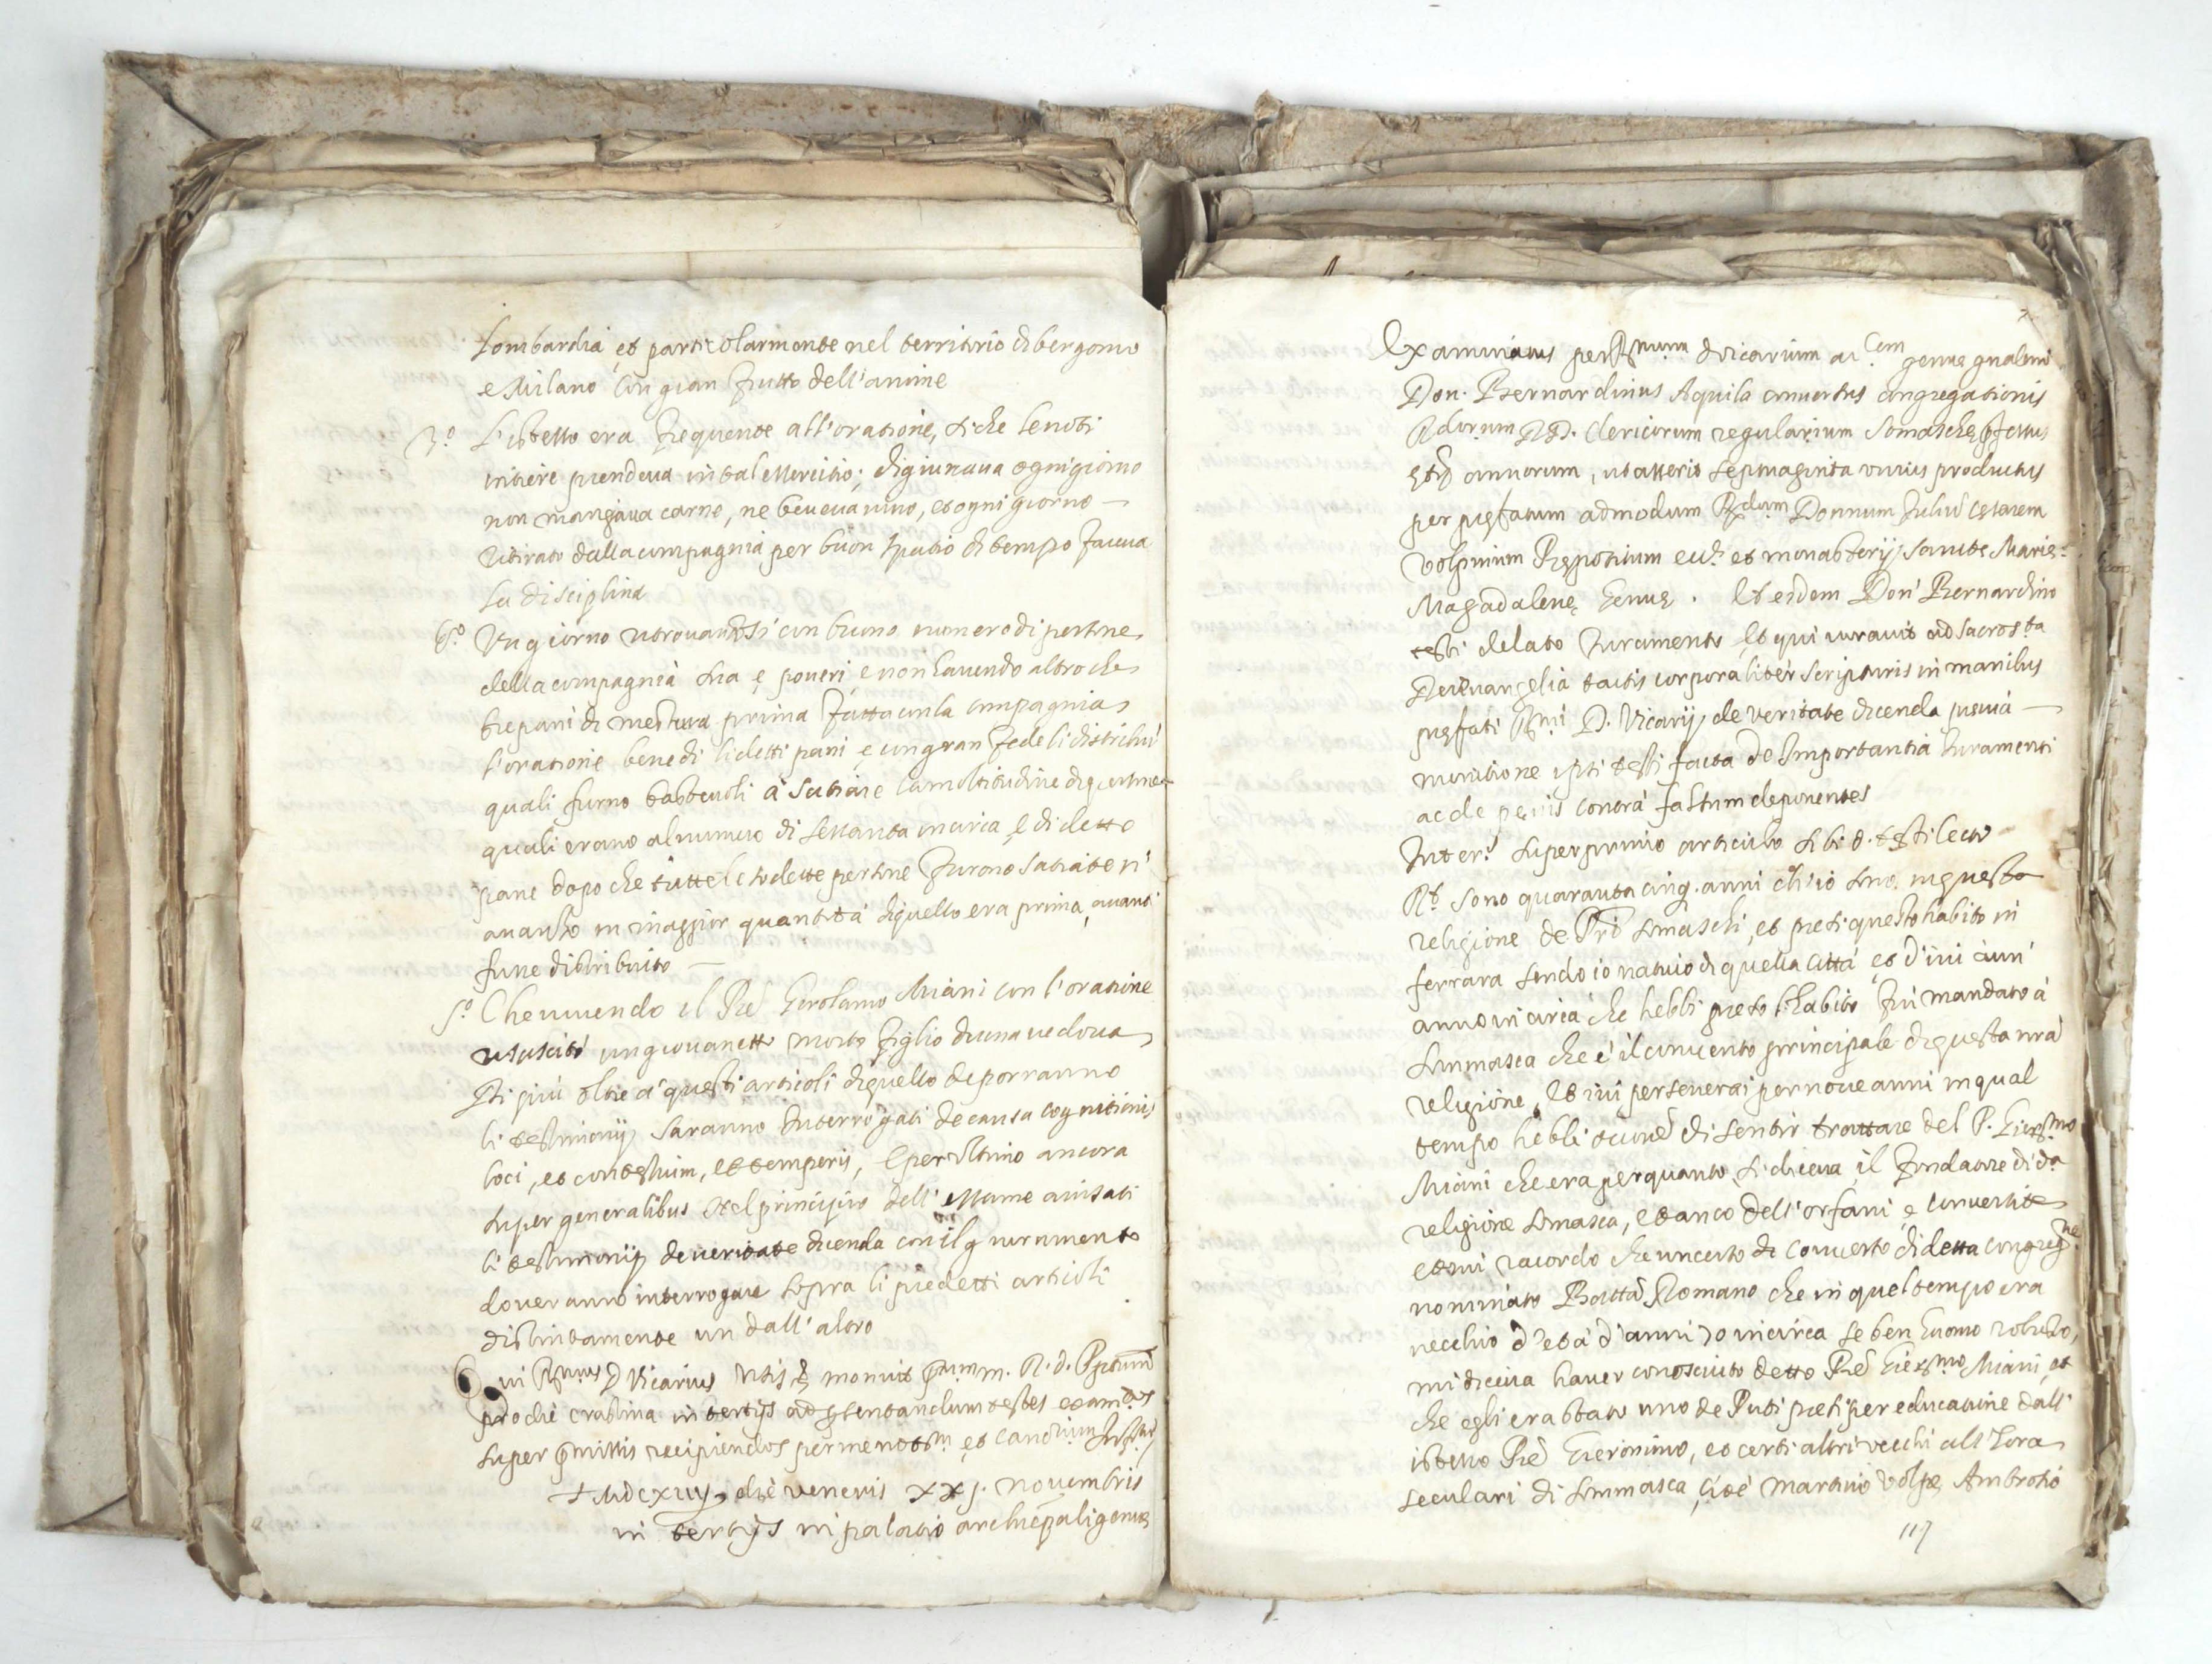 Lombardia et particolarmente nel territorio di bergomo
e Milano con gran frutto dell'anime
3.º L'istesso era frequente all'oratione, si che le notti
intiere prendeva in tal essercitio; digiunava ogni giorno
non mangiava carne, ne beveva vino, et ogni giorno
ritirato dalla compagnia per buon spatio di tempo faceva
la disciplina
Un giorno ritrovandosi con buono numero di persone
della compagnia sua e poveri e non havendo altro che
tre pani di mestura prima fatta con la compagnia
l'oratione benedì li detti pani e con gran fede li distribuì
quali furno bastevoli à satiare la moltitudine di persone
quali erano al numero di settanta incirca e di detto
pane dopo che tutte le sodette persone furono satiate ni
avanzò in maggior quantità di quello era prima, avanti
fune distribuito
5.º Che vivendo il Pre Gerolamo Miani con l'oratione
risuscitò un giovanetto morto figlio di una vedova
Di più oltre à questi articoli di quello deporranno
li testimonij saranno interrogati de causa cognitionis
loci, et contestium, et temporis, e per ultimo ancora
super generalibus nel principio dell'essame avisati
li testimonij de veritate dicenda con il giuramento
doveranno interrogare sopra li predetti articoli
distintamente un dall'altro
Qui Rmus D Vicarius monuit m. R. d.
pro die crastina in tertijs ad testes
super recipiendos et
+ MDCXIIIJ die veneris xxj. novembris
in tertijs in palatio archiepali genue
Examinatus per Rmum D vicarium genue gnalem
Don. Bernardinus Aquila conversus congregationis
Rdorum PP. Clericorum regularium Somasche
annorum, ut asserit septuaginta unius productus
per prefatum admodum Rdum Donnum Julium Cesarem
Volpinum Prepositum et monasterij Sancte Marie
Magadalene Genue . Et eidem Don Bernardino
testi delato Juramento et qui iuravit ad sacrosta
Dei Evangelia tactis corporaliter scripturis in manibus
prefati Rmi D. Vicarij de veritate dicenda previa
monitione ipsi testi facta de Importantia Juramenti
ac de penis contra falsum deponentes
Inter.s super primo articulo sibi d. testi lecto
Rt sono quaranta cinq. anni ch'io sono in questa
religione de Pri somaschi, et presi questo habito in
ferrara sendo io nativo di quella città et d'ivi à un
anno incirca che hebbi preso l'habito fui mandato à
Sommasca che è il convento principale di questa nrà
religione, Et ivi perseverai per nove anni in qual
tempo hebbi occone di sentir trattare del P. Giermo
Miani che era per quanto si diceva il fondatore di da
religione somasca, et anco dell'orfani e convertite
et mi racordo che un certo di converso di detta congregne
nominato Batta Romano che in quel tempo era
vecchio d'età d'anni 70 incirca se ben huomo robusto,
mi diceva haver conosciuto detto Pre Giermo Miani, et
che egli era stato uno de Puti presi per educatione dall'
istesso Pre Gieronimo, et certi altri vecchi all'hora
seculari di sommasca, cioè Martino Volpe, Ambrosio
117